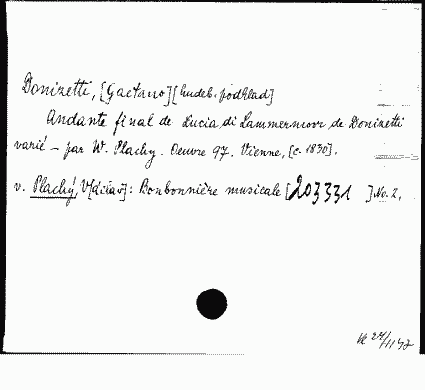 Donizetti, [Gaetano] [hudeb. podklad]
Andante final de Lucia di Lammermoor de Donizetti
varié – par W. Plachy. Oeuvre 97. Vienne, [c. 1830].
v. Plachý, V[áclav]: Bonbonnière musicale [203331 ] No. 2.